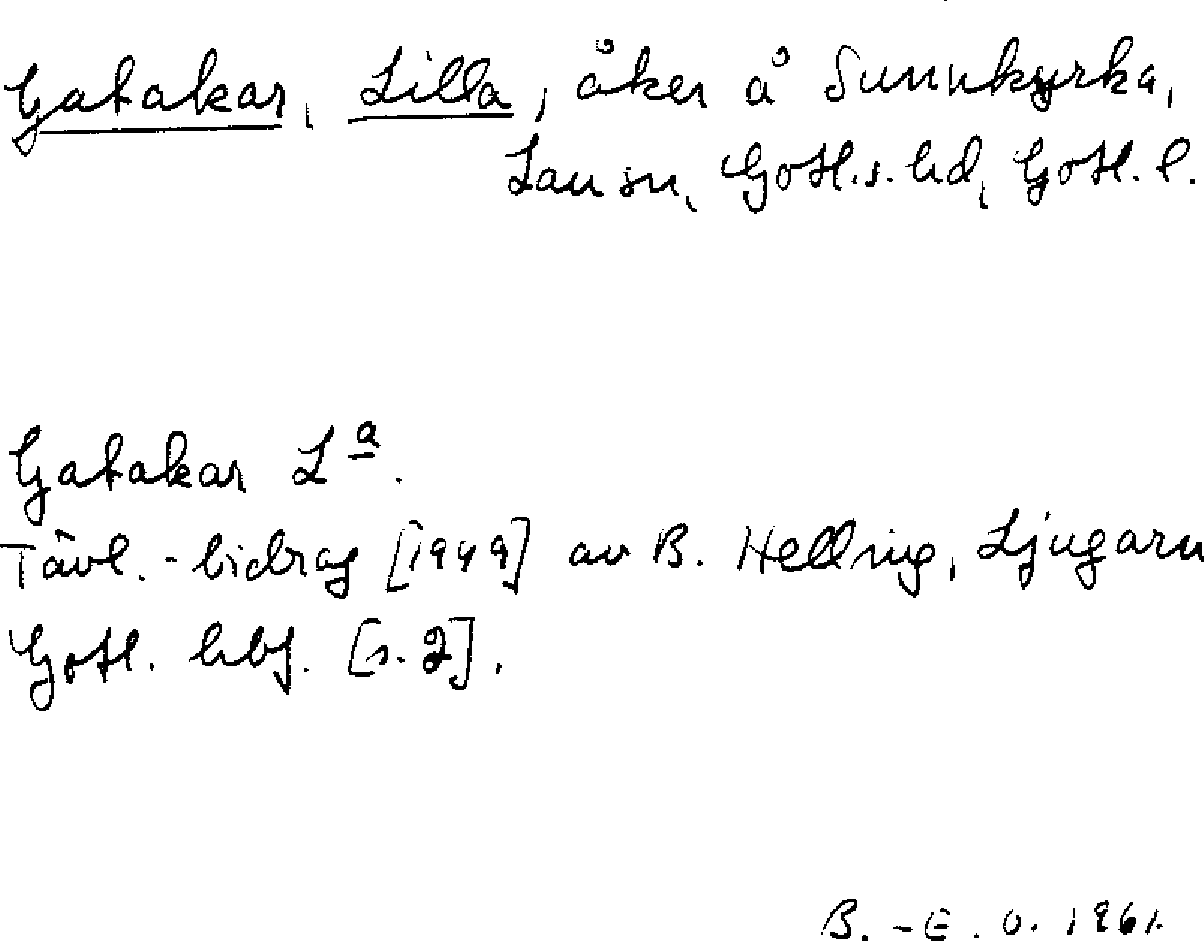 Gatakar, Lilla, åker å Sunnkyrka,
Lau sn, Gotl.s. hd, Gotl. l.
Gatakar L<sup>a</sup>.
Tävl.-bidrag [1949] av B. Hellring, Ljugarn
Gotl. hbf. [s. 2].
B.-E. O. 1961.